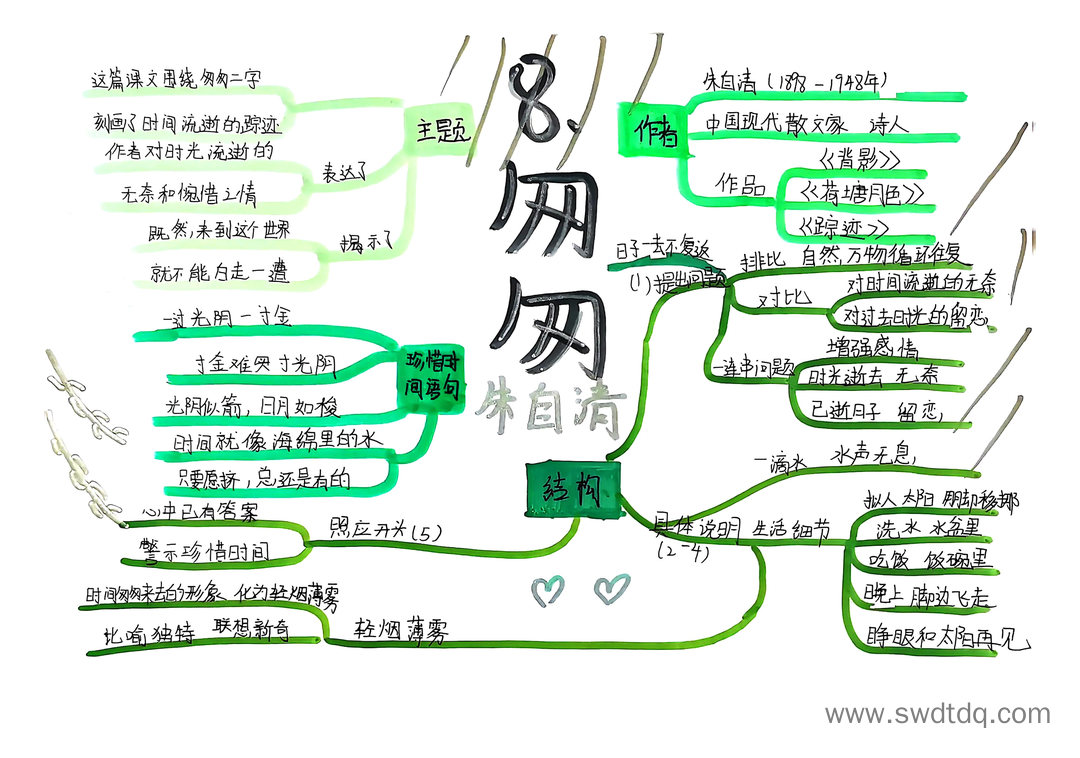 18.
匆
匆
朱自清
主题
这篇课文围绕匆匆二字
刻画了时间流逝的踪迹
表达了
作者对时光流逝的
无奈和惋惜之情
揭示了
既然,来到这个世界
就不能白走一遭
作者
朱自清(1898-1948年)
中国现代散文家 诗人
作品
《背影》
《荷塘月色》
《踪迹》
珍惜时
间语句
一寸光阴一寸金
寸金难买寸光阴
光阴似箭,日月如梭
时间就像海绵里的水
只要愿挤,总还是有的
结构
日子一去不复返
(1)提出问题
排比 自然万物循环往复
对比
对时间流逝的无奈
对过去时光的留恋
一连串问题
增强感情
时光逝去 无奈
已逝日子 留恋
具体说明 生活细节
(2-4)
一滴水 水声无息
拟人 太阳 脚却移挪
洗水 水盆里
吃饭 饭碗里
晚上 脚边飞走
睁眼和太阳再见
轻烟薄雾
时间匆匆来去的形象 化为轻烟薄雾
比喻独特 联想新奇
照应开头(5)
心中已有答案
警示珍惜时间
www.swdtdq.com